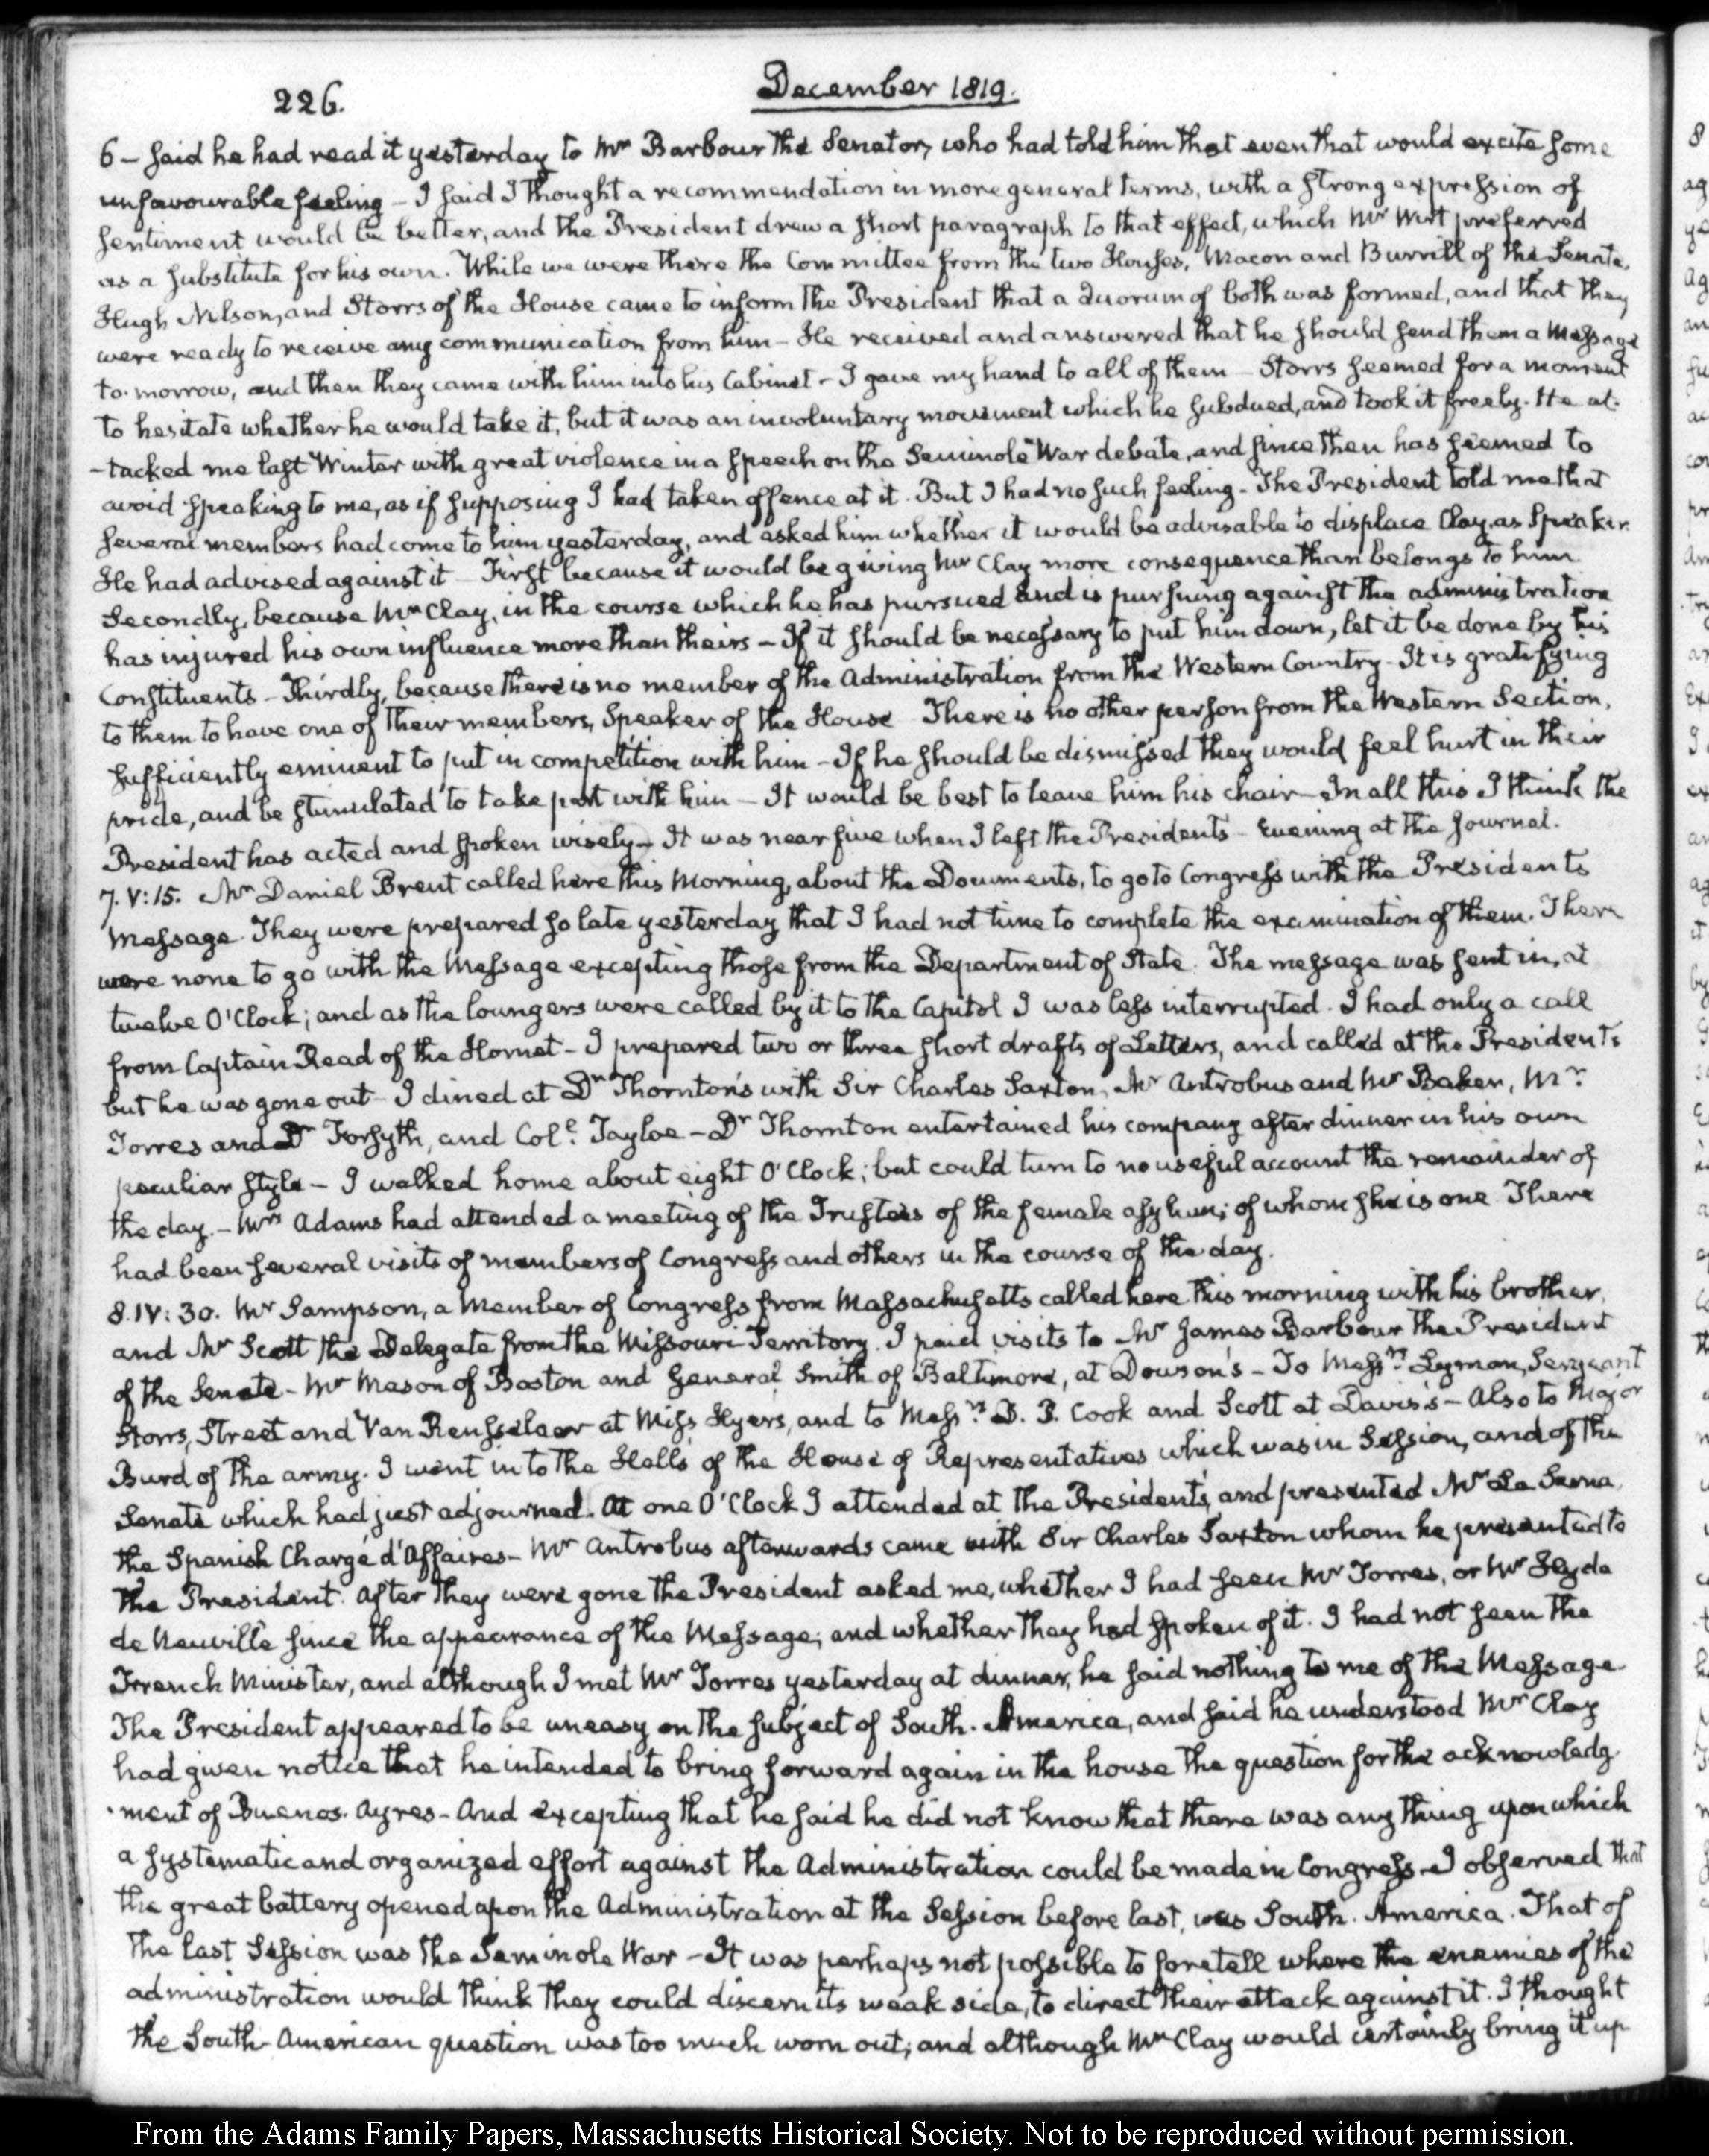 226.
December 1819.
6 — said he had read it yesterday to Mr Barbour the Senator, who had told him that even that would excite some
unfavourable feeling — I said I thought a recommendation in more general terms, with a strong expression of
sentiment would be better, and the President drew a short paragraph to that effect, which Mr Wirt preferred
as a substitute for his own. While we were there the Committee from the two Houses, Macon and Burrill of the Senate,
Hugh Nelson, and Storrs of the House came to inform the President that a Quorum of both was formed, and that they
were ready to receive any communication from him — He received and answered that he should send them a Message
to-morrow, and then they came with him into his Cabinet — I gave my hand to all of them — Storrs seemed for a moment
to hesitate whether he would take it, but it was an involuntary movement which he subdued, and took it freely. He at-
-tacked me last Winter with great violence in a speech on the Seminole War debate, and since then has seemed to
avoid speaking to me, as if supposing I had taken offence at it. But I had no such feeling — The President told me that
several members had come to him yesterday, and asked him whether it would be advisable to displace Clay, as Speaker.
He had advised against it — First because it would be giving Mr Clay more consequence than belongs to him
Secondly, because Mr Clay, in the course which he has pursued and is pursuing against the administration
has injured his own influence more than theirs — If it should be necessary to put him down, let it be done by his
Constituents — Thirdly, because there is no member of the Administration from the Western Country — It is gratifying
to them to have one of their members, Speaker of the House There is no other person from the Western Section,
sufficiently eminent to put in competition with him — If he should be dismissed they would feel hurt in their
pride, and be stimulated to take part with him — It would be best to leave him his chair — In all this I think the
President has acted and spoken wisely — It was near five when I left the Presidents — Evening at the Journal.
7. V:15. Mr Daniel Brent called here this Morning, about the Documents, to go to Congress with the Presidents
Message. They were prepared so late yesterday that I had not time to complete the examination of them. There
were none to go with the Message excepting those from the Department of State. The message was sent in, at
twelve O'Clock; and as the loungers were called by it to the Capitol I was less interrupted. I had only a call
from Captain Read of the Hornet — I prepared two or three short drafts of Letters, and called at the Presidents
but he was gone out — I dined at Dr Thornton's with Sir Charles Saxton, Mr Antrobus and Mr Baker, Mr
Torres and Dr Forsyth, and Col. Tayloe — Dr Thornton entertained his company after dinner in his own
peculiar style — I walked home about eight O'Clock; but could turn to no useful account the remainder of
the day. — Mrs Adams had attended a meeting of the Trustees of the female asylum; of whom she is one There
had been several visits of members of Congress and others in the course of the day.
8. IV:30. Mr Sampson, a Member of Congress from Massachusetts called here this morning with his brother,
and Mr Scott the Delegate from the Missouri Territory. I paid visits to Mr James Barbour the President
of the Senate — Mr Mason of Boston and General Smith of Baltimore, at Dowson's — To Messrs Lyman, Sergeant
Storrs, Street and Van Rensselaer at Miss Hyers, and to Messrs D. P. Cook and Scott at Davis's — Also to Major
Burd of the army. I went into the Halls of the House of Representatives which was in Session, and of the
Senate which had just adjourned. At one O'Clock I attended at the President's, and presented Mr La Serna,
the Spanish Chargé d'Affaires — Mr Antrobus afterwards came with Sir Charles Saxton whom he presented to
the President. After they were gone the President asked me, whether I had seen Mr Torres, or Mr Hyde
de Neuville since the appearance of the Message; and whether they had spoken of it. I had not seen the
French Minister, and although I met Mr Torres yesterday at dinner, he said nothing to me of the Message.
The President appeared to be uneasy on the subject of South-America, and said he understood Mr Clay
had given notice that he intended to bring forward again in the house the question for the acknowledg-
-ment of Buenos-Ayres — And excepting that he said he did not know that there was any thing upon which
a systematic and organized effort against the Administration could be made in Congress — I observed that
the great battery opened upon the Administration at the Session before last, was South-America. That of
the last Session was the Seminole War — It was perhaps not possible to foretell where the enemies of the
administration would think they could discern its weak side, to direct their attack against it. I thought
the South-American question was too much worn out; and although Mr Clay would certainly bring it up
From the Adams Family Papers, Massachusetts Historical Society. Not to be reproduced without permission.